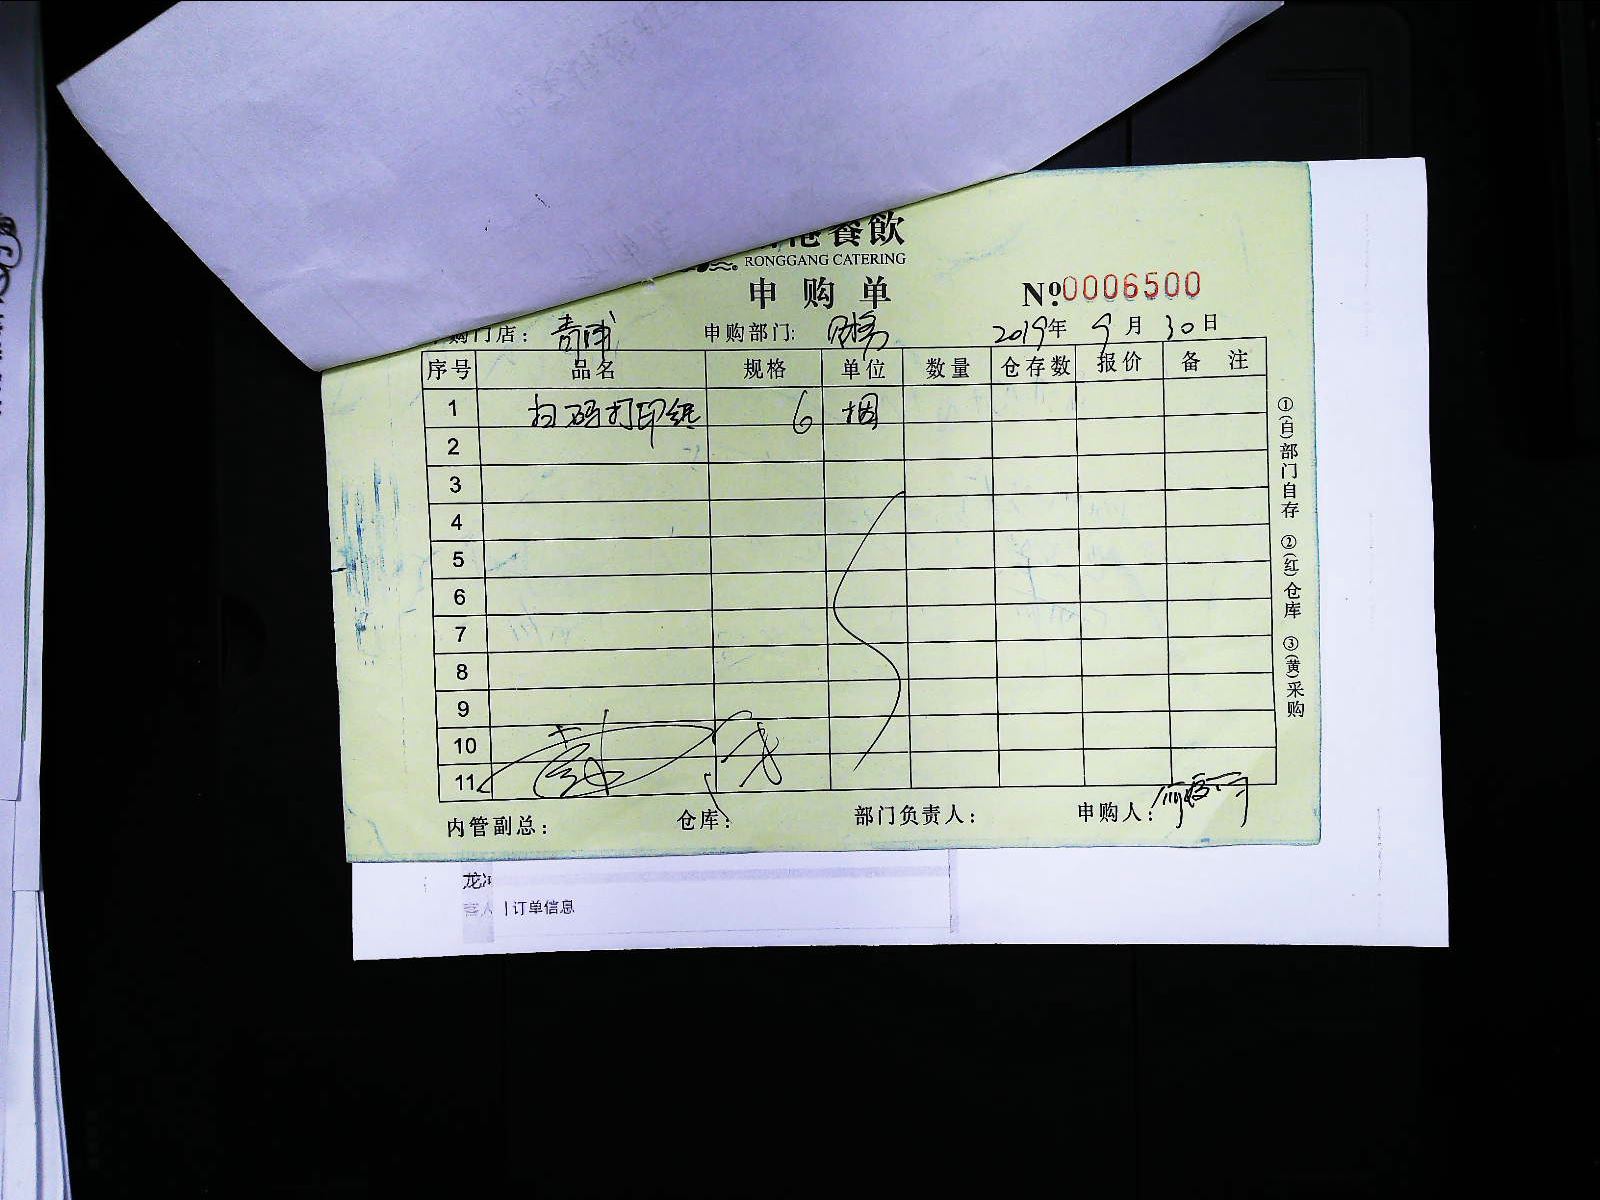 港餐飲
RONGGANG CATERING
申购单
№0006500
购门店： 申购部门: 2019年 9月 30日
序号 品名 规格 单位 数量 仓存数 报价 备注
1 扫码打印纸 6 捆
2
3
4
5
6
7
8
9
10
11
内管副总： 仓库： 部门负责人： 申购人：
①(白)部门自存 ②(红)仓库 ③(黄)采购
龙
客人 订单信息